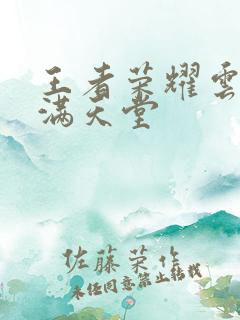 王者荣耀雲
满天堂
佐藤荣作
未经同意禁止转载